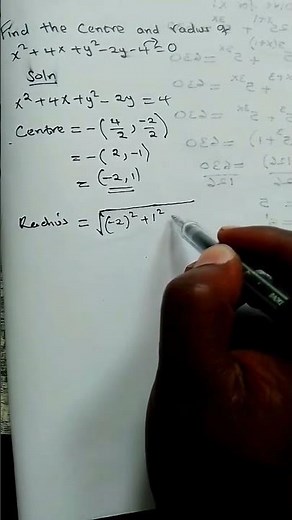 Find the Centre and radius of
x² + 4x + y² - 2y - 4 = 0
Soln
x² + 4x + y² - 2y = 4
Centre = -(4/2, -2/2)
= -(2, -1)
= (-2, 1)
Radius = √(-2)² + 1²